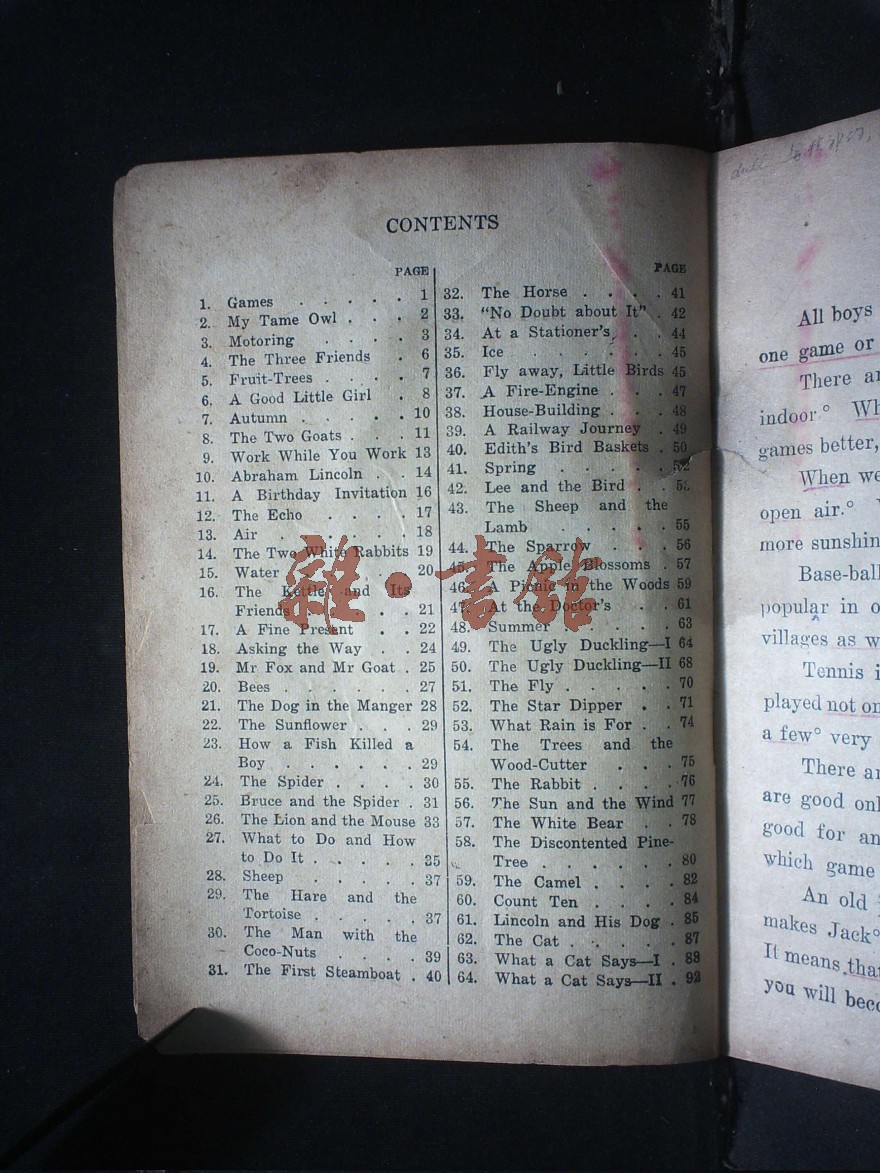 CONTENTS
PAGE
1. Games . . . . . 1
2. My Tame Owl . . . 2
3. Motoring . . . . 3
4. The Three Friends . 6
5. Fruit-Trees . . . . 7
6. A Good Little Girl . 8
7. Autumn . . . . . 10
8. The Two Goats . . . 11
9. Work While You Work 13
10. Abraham Lincoln . . 14
11. A Birthday Invitation 16
12. The Echo . . . . 17
13. Air . . . . . . 18
14. The Two White Rabbits 19
15. Water . . . . . 20
16. The Kettle and Its
Friends . . . . . 21
17. A Fine Present . . 22
18. Asking the Way . . 24
19. Mr Fox and Mr Goat . 25
20. Bees . . . . . . 27
21. The Dog in the Manger 28
22. The Sunflower . . . 29
23. How a Fish Killed a
Boy . . . . . . 29
24. The Spider . . . . 30
25. Bruce and the Spider . 31
26. The Lion and the Mouse 33
27. What to Do and How
to Do It . . . . . 35
28. Sheep . . . . . 37
29. The Hare and the
Tortoise . . . . . 37
30. The Man with the
Coco-Nuts . . . . 39
31. The First Steamboat . 40
PAGE
32. The Horse . . . . 41
33. "No Doubt about It" . 42
34. At a Stationer's . . 44
35. Ice . . . . . . 45
36. Fly away, Little Birds 45
37. A Fire-Engine . . . 47
38. House-Building . . . 48
39. A Railway Journey . 49
40. Edith's Bird Baskets . 50
41. Spring . . . . . 52
42. Lee and the Bird . .
43. The Sheep and the
Lamb . . . . . 55
44. The Sparrow . . . 56
45. The Apple Blossoms . 57
46. A Picnic in the Woods 59
47. At the Doctor's . . 61
48. Summer . . . . . 63
49. The Ugly Duckling—I 64
50. The Ugly Duckling—II 68
51. The Fly . . . . . 70
52. The Star Dipper . . 71
53. What Rain is For . . 74
54. The Trees and the
Wood-Cutter . . . 75
55. The Rabbit . . . . 76
56. The Sun and the Wind 77
57. The White Bear . . 78
58. The Discontented Pine-
Tree . . . . . . 80
59. The Camel . . . . 82
60. Count Ten . . . . 84
61. Lincoln and His Dog . 85
62. The Cat . . . . . 87
63. What a Cat Says—I . 88
64. What a Cat Says—II . 92
雜·書館
All boys
one game or
There
indoor°
games better,
When we
open air.°
more
Base-ball
popular in
villages as
Tennis
played not
a few° very
There
are good
good for
which game
An old
makes Jack°
It means that
you will